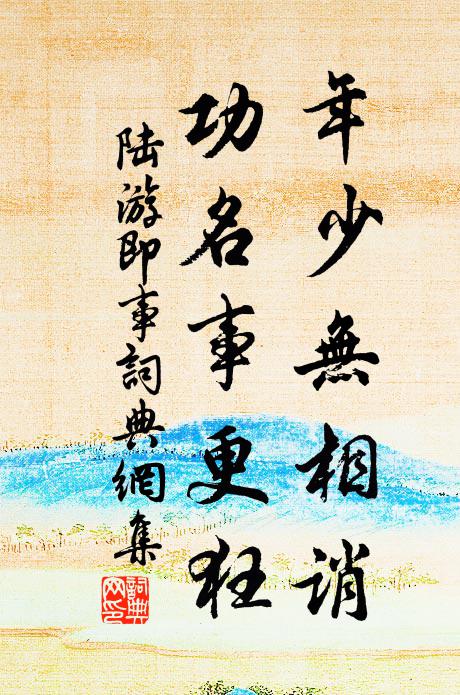 年少無相誚
功名事更狂
陸游即事詞典網集
詞典